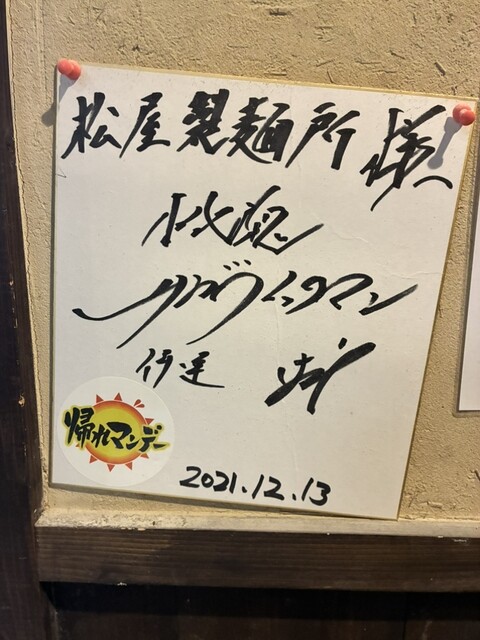 松屋製麺所 様
サンドウィッチマン
伊達
帰れマンデー
2021.12.13